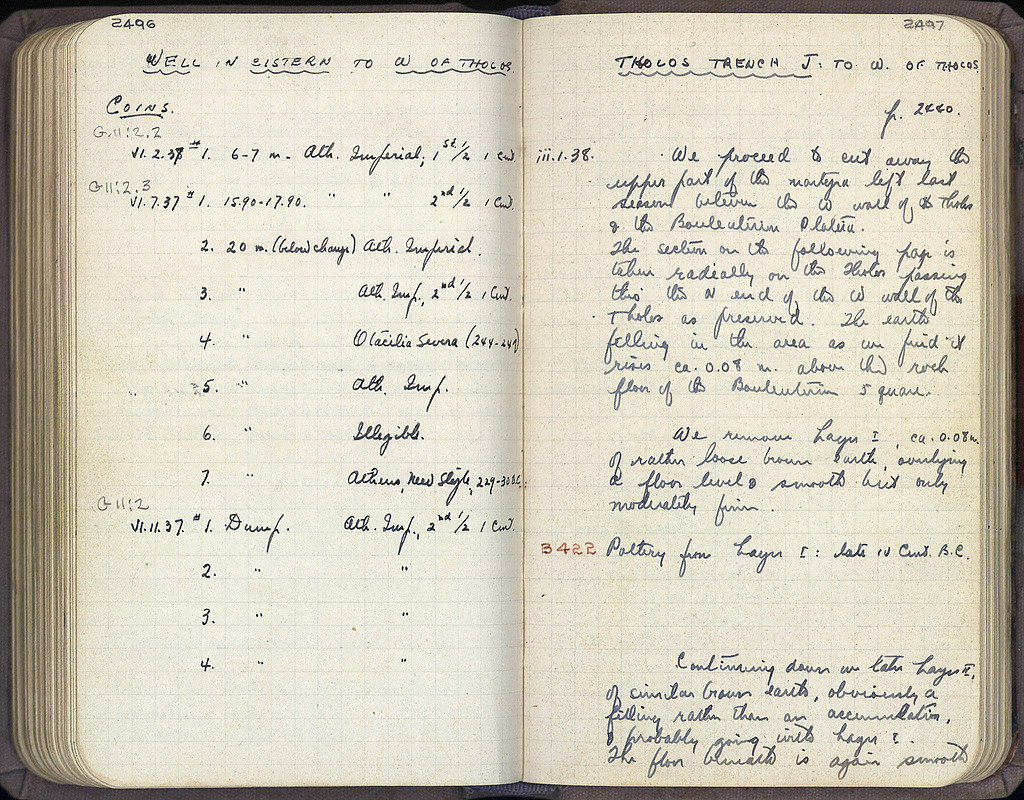 2496
WELL IN CISTERN TO W OF THOLOS.
COINS.
G.11:2.2
VI.2.37 #1. 6-7 m. Ath. Imperial; 1st 1/2 1 Cent.
G 11:2.3
VI.7.37 #1. 15.90-17.90. " " 2nd 1/2 1 Cent.
2. 20 m. (below change) Ath. Imperial.
3. " Ath. Imp., 2nd 1/2 1 Cent.
4. " Otacilia Severa (244-249)
5. " Ath. Imp.
6. " Illegible.
7. " Athens, New Style, 229-30 B.C.
G 11:2
VI.11.37 #1. Dump. Ath. Imp., 2nd 1/2 1 Cent.
2. " "
3. " "
4. " "
2497
THOLOS TRENCH J: TO W. OF THOLOS
p. 2440.
iii.1.38. We proceed to cut away the
upper part of the martyra left last
season between the W wall of the Tholos
& the Bouleuterion Plateia.
The section on the following page is
taken radially on the Tholos passing
thro' the N end of the W wall of the
Tholos as preserved. The earth
filling in the area as we find it
rises ca. 0.08 m. above the rock
floor of the Bouleuterion Square.
We remove Layer I, ca. 0.08 m.
of rather loose brown earth, overlying
a floor level & smooth but only
moderately firm.
B422 Pottery from Layer I: late IV Cent. B.C.
Continuing down we take Layer II,
of similar brown earth, obviously a
filling rather than an accumulation,
& probably going with Layer I.
The floor beneath is again smooth